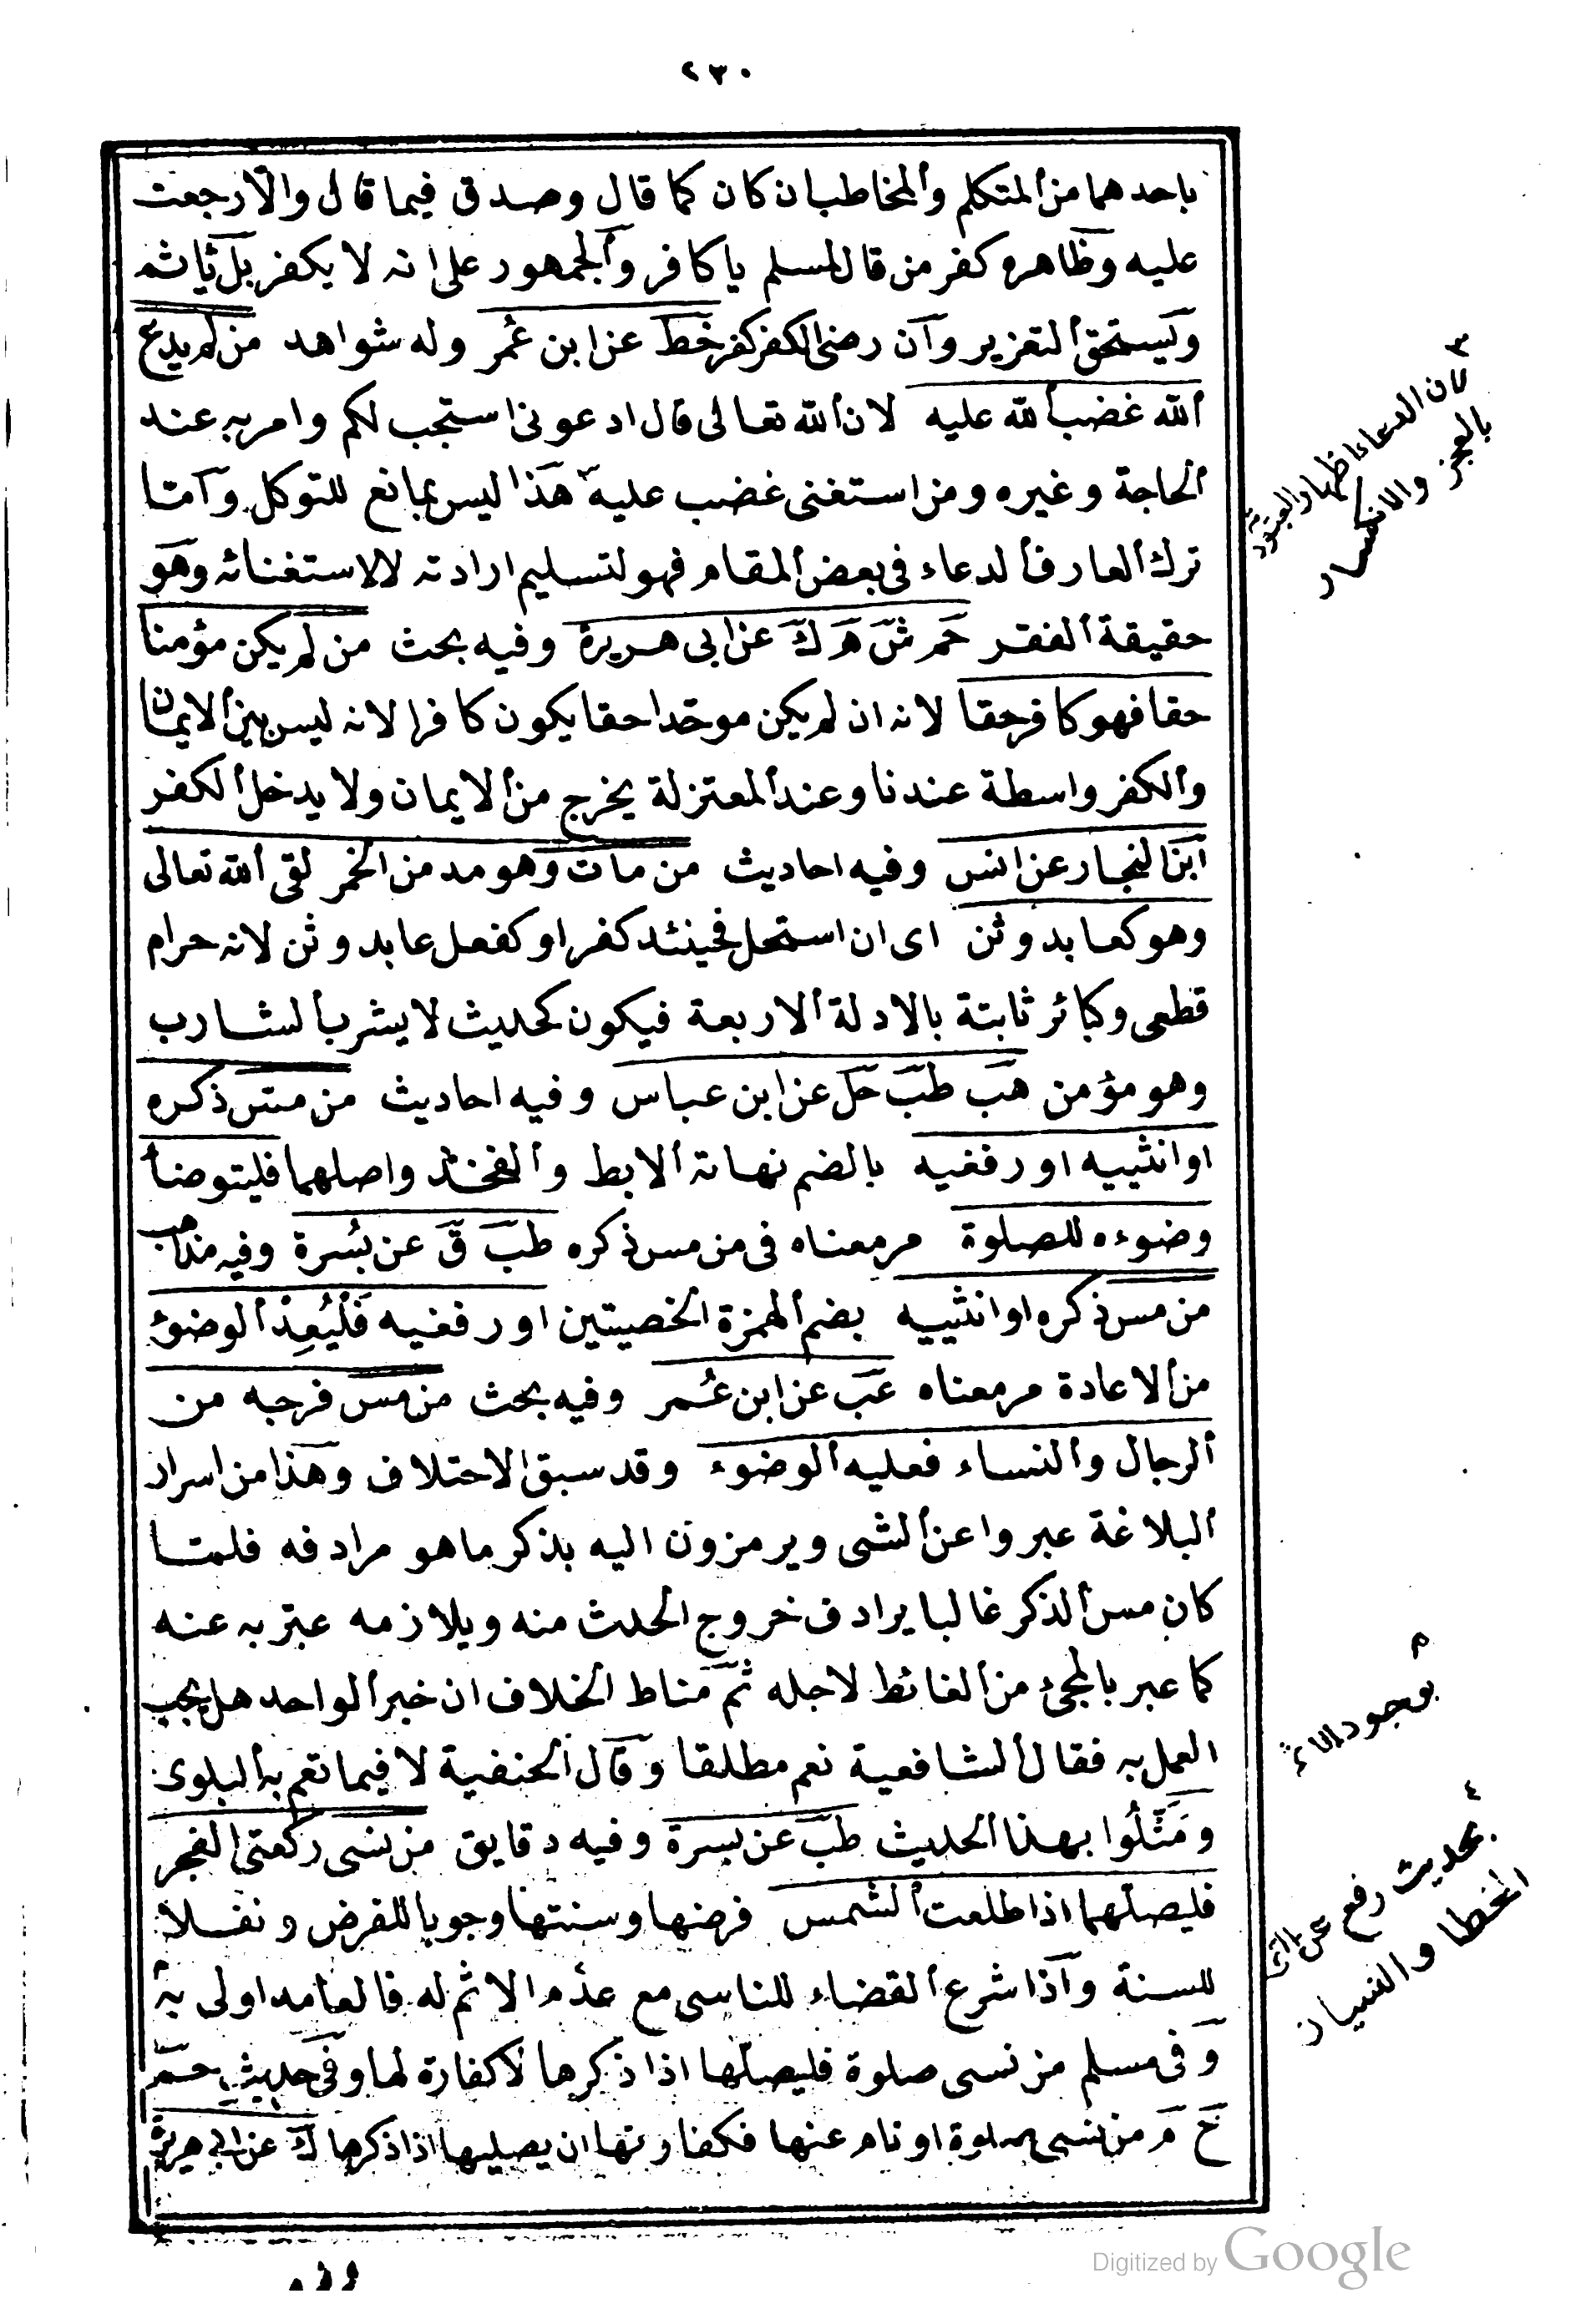 ٢٣٠
باحدهما من المتكلم والمخاطب ان كان كما قال وصدق فيما قال والا رجعت
عليه وظاهره كفر من قال لمسلم يا كافر والجمهور على انه لا يكفر بل يأثم
ويستحق التعزير وان رضى الكفر كفر خط عن ابن عمر وله شواهد من لم يدع
الله غضب الله عليه لان الله تعالى قال ادعونى استجب لكم وامر به عند
الحاجة وغيره ومن استغنى غضب عليه ٣ هذا ليس بمانع للتوكل واما
ترك العارف الدعاء فى بعض المقام فهو لتسليم ارادته لا لاستغنائه وهو
حقيقة الفقر حم ش هر ك عن ابى هريرة وفيه بحث من لم يكن مؤمنا
حقا فهو كافر حقا لانه ان لم يكن موحدا حقا يكون كافرا لانه ليس بين الايمان
والكفر واسطة عندنا وعند المعتزلة يخرج من الايمان ولا يدخل الكفر
ابن النجار عن انس وفيه احاديث من مات وهو مدمن الخمر لقى الله تعالى
وهو كعابد وثن اى ان استحل فحينئذ كفر او كفعل عابد وثن لانه حرام
قطعى وكبائر ثابتة بالادلة الاربعة فيكون كحديث لا يشرب الشارب
وهو مؤمن هب طب حل عن ابن عباس وفيه احاديث من مس ذكره
او انثييه او رفغيه بالضم نهاية الابط والفخذ واصلهما فليتوضأ
وضوءه للصلوة مر معناه فى من مس ذكره طب ق عن بُسرة وفيه مذاهب
من مس ذكره او انثييه بضم الهمزة الخصيتين او رفغيه فَلْيُعِدْ الوضوء
من الاعادة مر معناه عب عن ابن عُمر وفيه بحث من مس فرجه من
الرجال والنساء فعليه الوضوء وقد سبق الاختلاف وهذا من اسرار
البلاغة عبروا عن الشى ويرمزون اليه بذكر ما هو مرادفه فلما
كان مس الذكر غالبا يرادف خروج الحدث منه ويلازمه عبر به عنه
كما عبر بالمجئ من الغائط لاجله ثم مناط الخلاف ان خبر الواحد هل يجب
العمل به فقال الشافعية نعم مطلقا وقال الحنفية لا فيما تعم به البلوى
ومَثَّلُوا بهذا الحديث طب عن بسرة وفيه دقايق من نسى ركعتى الفجر
فليصلهما اذا طلعت الشمس فرضها وسنتها وجوبا للفرض ونفلا
للسنة واذا شرع القضاء للناسى مع عدم الاثم له فالعامد اولى به
وفى مسلم من نسى صلوة فليصلها اذا ذكرها لا كفارة لها وفى حديث حم
خ م من نسى صلوة او نام عنها فكفارتها ان يصليها اذا ذكرها ك عن ابى هريرة
٣
لان الدعاء اظهار العبودية
بالعجز والانكسار
م
بوجود الاثم
٤
بحديث رفع عن امتى
الخطا والنسيان
Digitized by Google